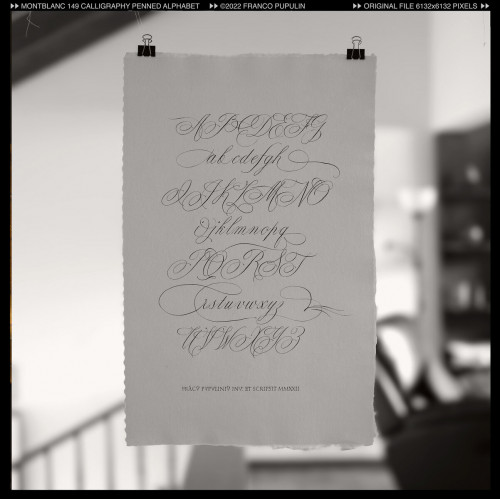 ▸▸ MONTBLANC 149 CALLIGRAPHY PENNED ALPHABET ▸▸ ©2022 FRANCO PUPULIN ▸▸ ORIGINAL FILE 6132x6132 PIXELS ▸▸
ABCDEFG
abcdefgh
IJKLMNO
ijklmnopq
PQRST
rstuvwxyz
UVWXYZ
ET SCRIPSIT MMXXII